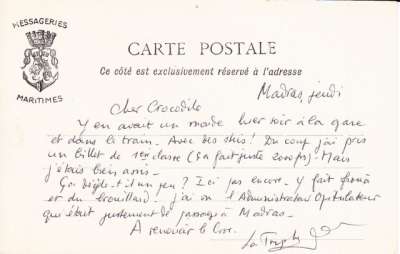 MESSAGERIES
MARITIMES
CARTE POSTALE
Ce côté est exclusivement réservé à l'adresse
Madras, jeudi
Cher Crocodile
Y en avait un monde hier soir à la gare
et dans le train. Avec des skis! Du coup j'ai pris
un billet de 1ère classe (ça fait juste 2000frs). Mais
j'étais bien assis.
Ça dégèle-t-il un peu? Ici pas encore. Y fait froid
et du brouillard. J'ai vu l'Administrateur
qui était justement de passage à Madras.
A renevoir le Croc.